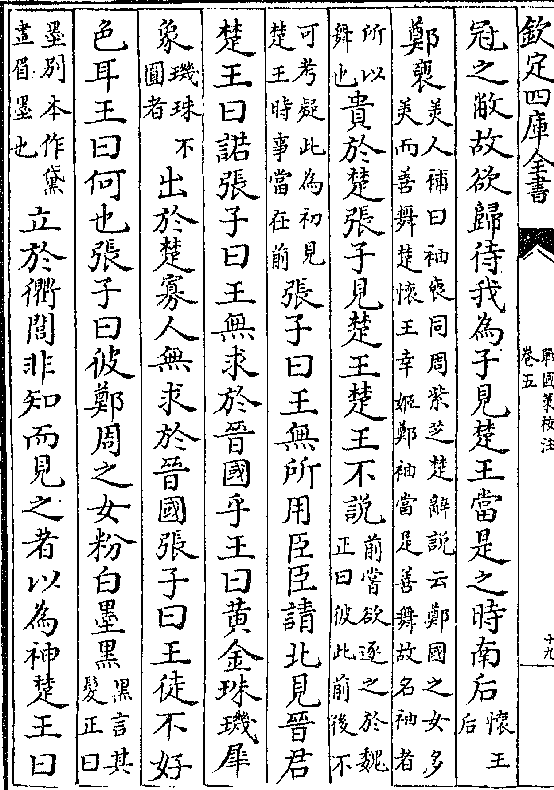 欽定四庫全書 戰國策校注 卷五 十九
冠之敝故欲歸待我為子見楚王當是之時南后懷王后
鄭褏美人補曰袖褏同周紫芝楚辭説云鄭國之女多美而善舞楚懷王幸姬鄭袖當是善舞故名袖者
所以舞也貴於楚張子見楚王楚王不説前嘗欲逐之於魏正曰彼此前後不
可考疑此為初見楚王時事當在前張子曰王無所用臣臣請北見晉君
楚王曰諾張子曰王無求於晉國乎王曰黄金珠璣犀
象璣珠不圓者出於楚寡人無求於晉國張子曰王徒不好
色耳王曰何也張子曰彼鄭周之女粉白墨黑黑言其髮正曰
墨别本作黛畫眉墨也立於衢閭非知而見之者以為神楚王曰